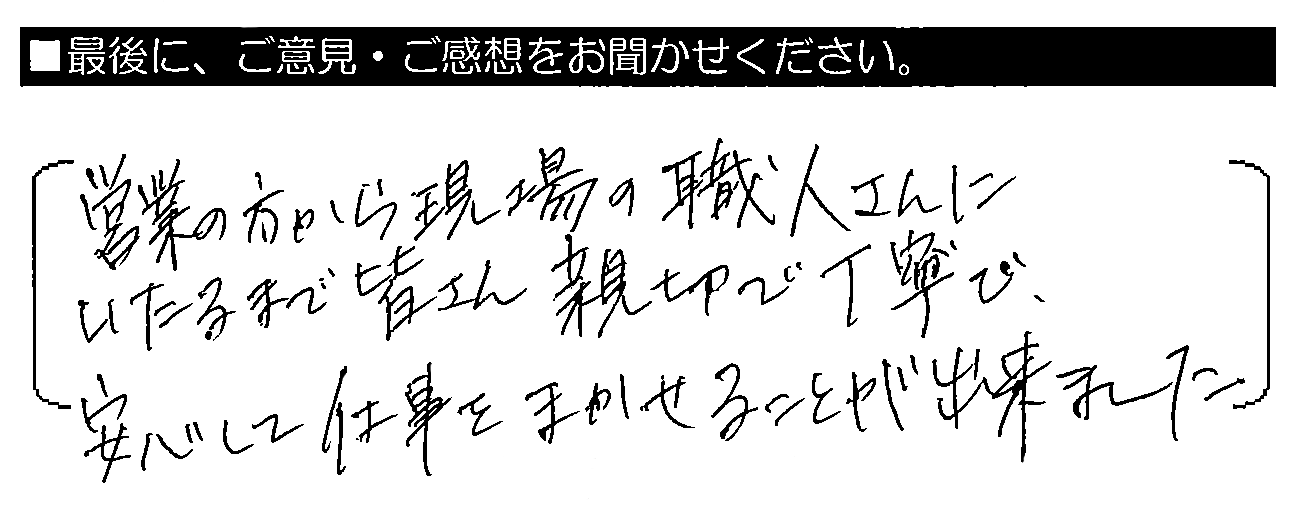 ■最後に、ご意見・ご感想をお聞かせください。
営業の方から現場の職人さんに
いたるまで皆さん親切で丁寧で、
安心して仕事をまかせることが出来ました